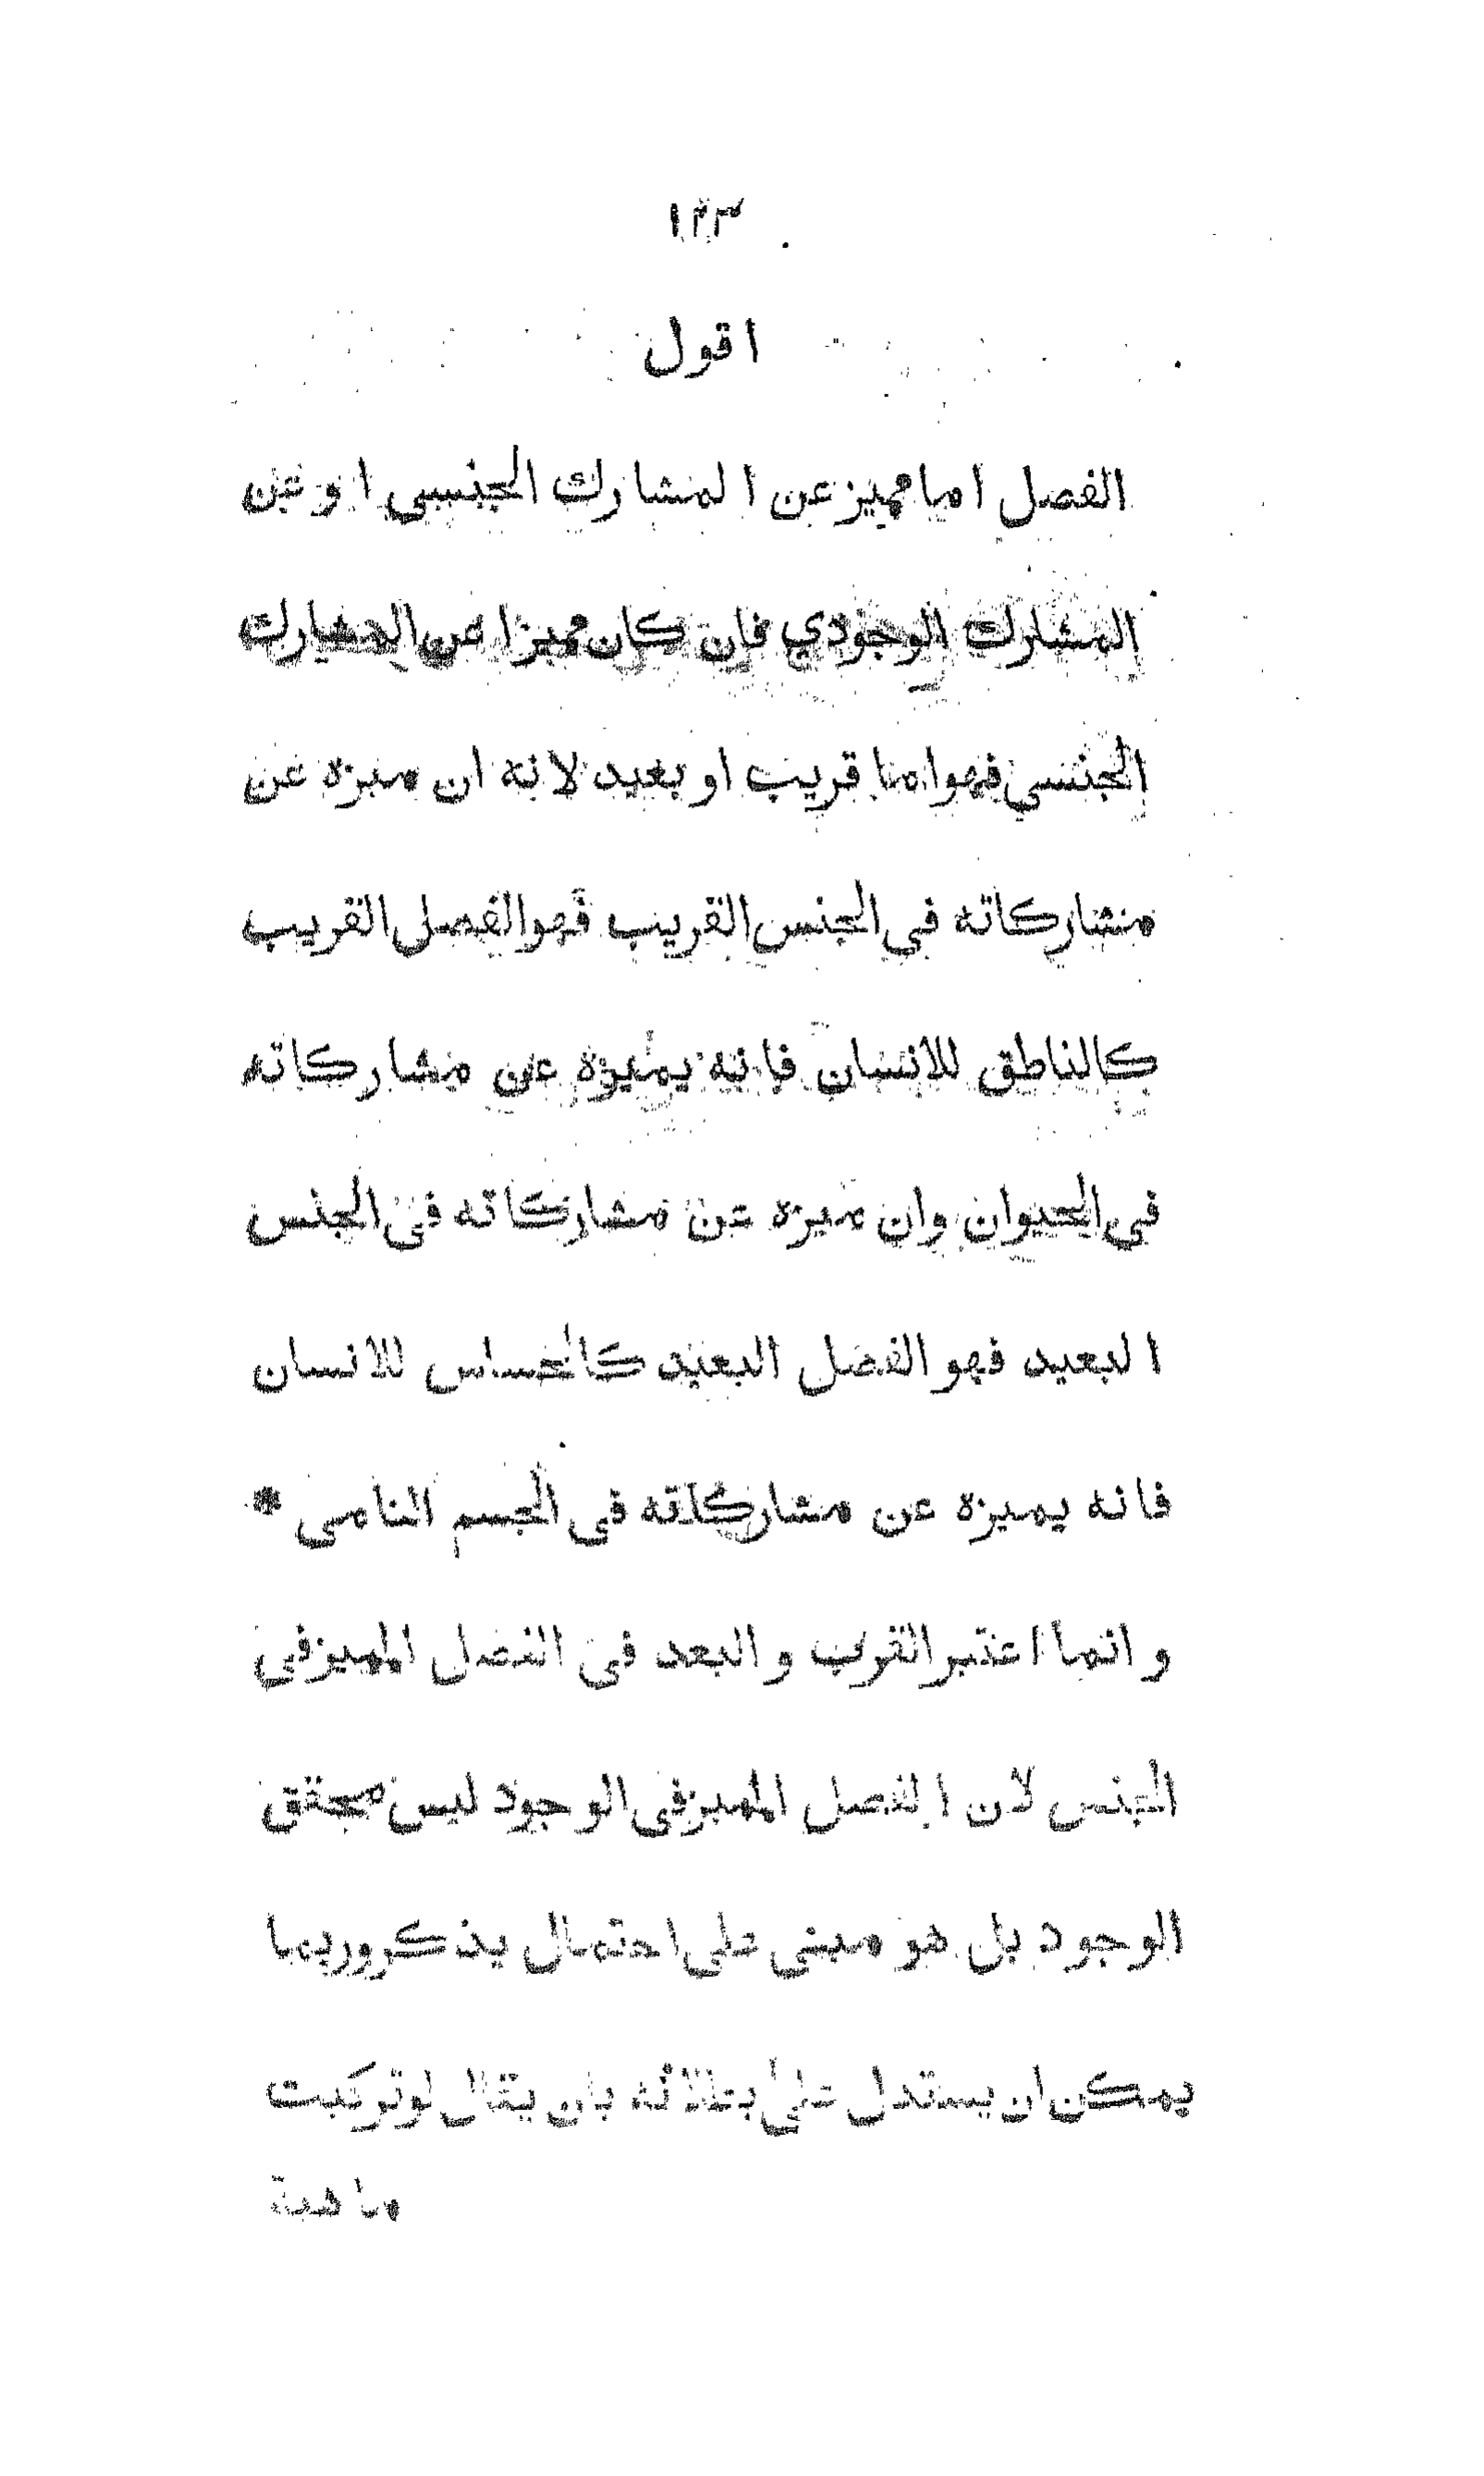 ١٢٣
اقول
الفصل اما مميز عن المشارك الجنسي او عن
المشارك الوجودي فان كان مميزا عن المشارك
الجنسي فهو اما قريب او بعيد لانه ان ميزه عن
مشاركاته في الجنس القريب فهو الفصل القريب
كالناطق للانسان فانه يميزه عن مشاركاته
في الحيوان وان ميزه عن مشاركاته في الجنس
البعيد فهو الفصل البعيد كالحساس للانسان
فانه يميزه عن مشاركاته في الجسم النامي *
وانما اعتبر القرب والبعد في الفصل المميز في
الجنس لان الفصل المميز في الوجود ليس محقق
الوجود بل هو مبني على احتمال يذكر وربما
يمكن ان يستدل على بطلانه بان يقال لو تركبت
ماهية